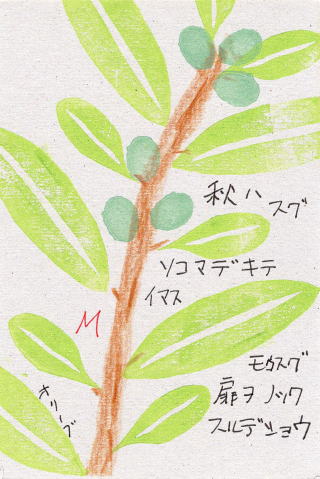 秋ハ
スグ
ソコマデキテ
イマス
M
モウスグ
扉ヲノック
スルデショウ
オリーブ